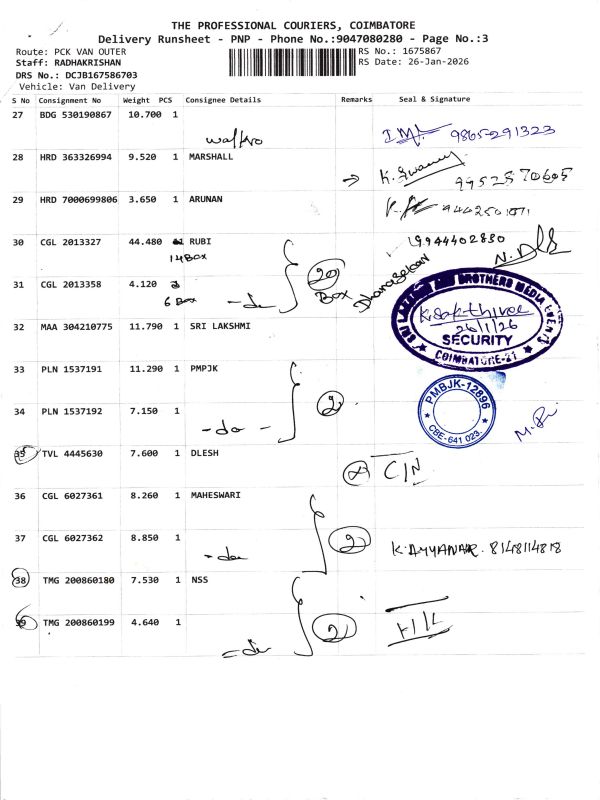 THE PROFESSIONAL COURIERS, COIMBATORE
Delivery Runsheet - PNP - Phone No.:9047080280 - Page No.:3
Route: PCK VAN OUTER RS No.: 1675867
Staff: RADHAKRISHAN RS Date: 26-Jan-2026
DRS No.: DCJB167586703
Vehicle: Van Delivery
S No Consignment No Weight PCS Consignee Details Remarks Seal & Signature
27 BDG 530190867 10.700 1
9865291323
28 HRD 363326994 9.520 1 MARSHALL
K. Swamy
9952570605
29 HRD 7000699806 3.650 1 ARUNAN
30 CGL 2013327 44.480 RUBI
9944402830
14 BOX
20 BOX Dhanasekaran
31 CGL 2013358 4.120
6 BOX -do
BROTHERS MEDIA
K. Sakthivel
26/1/26
SECURITY
COIMBATORE-21
32 MAA 304210775 11.790 1 SRI LAKSHMI
33 PLN 1537191 11.290 1 PMPJK
PMBJK-12896
CBE-641 023.
34 PLN 1537192 7.150 1
-do- 2
35 TVL 4445630 7.600 1 DLESH
C/N
36 CGL 6027361 8.260 1 MAHESWARI
37 CGL 6027362 8.850 1
-do 2 K. AYYANAR. 8148114818
38 TMG 200860180 7.530 1 NSS
39 TMG 200860199 4.640 1
-do 2